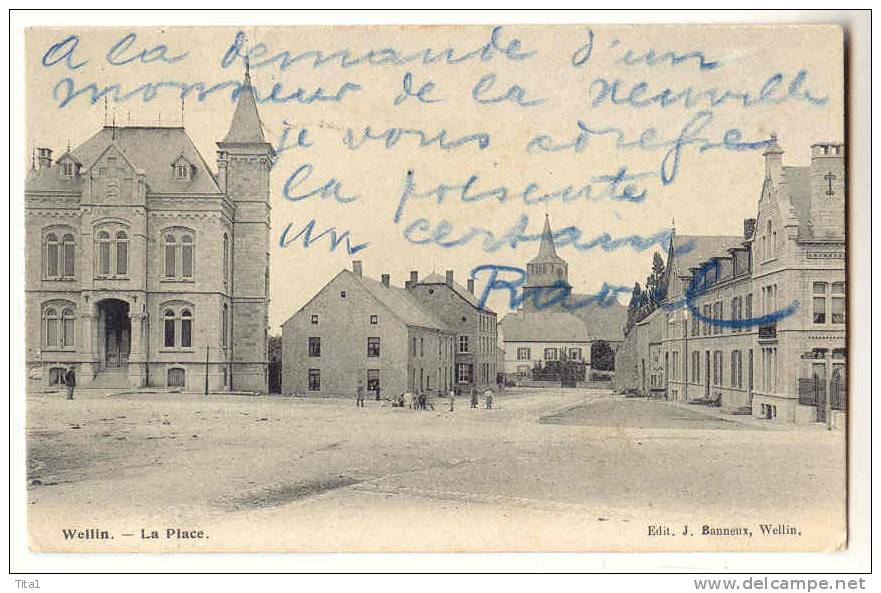 A la demande d'un
monsieur de la neuville
je vous adresse
la présente
un certain
Raoul
Wellin. — La Place.
Edit. J. Banneux, Wellin.
Tital
www.delcampe.net